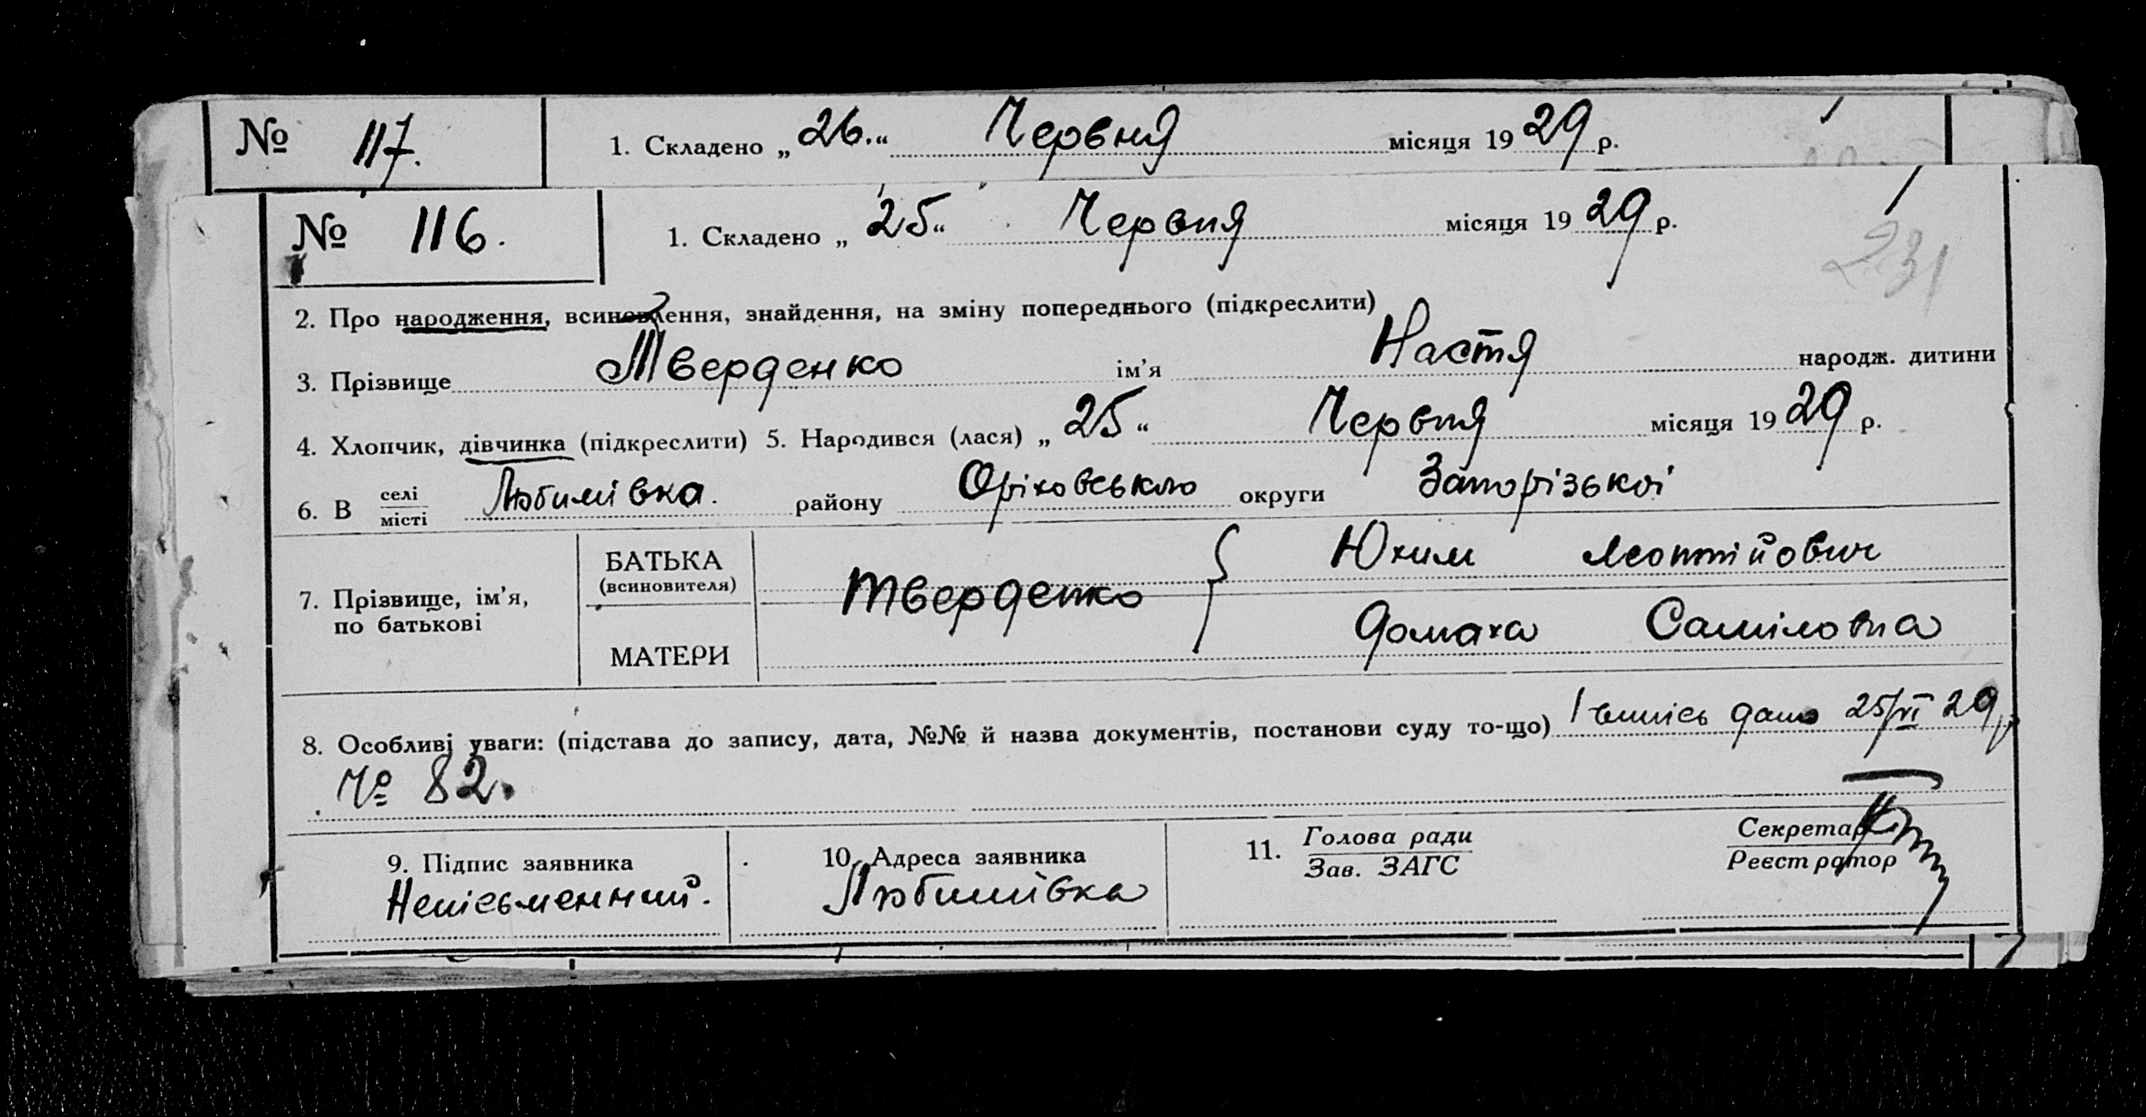 № 117. 1. Складено „ 26. “ Червня місяця 19 29 р.
№ 116. 1. Складено „ 25 “ Червня місяця 19 29 р.
231
2. Про народження, всиновлення, знайдення, на зміну попереднього (підкреслити)
3. Прізвище Тверденко ім’я Настя народж. дитини
4. Хлопчик, дівчинка (підкреслити) 5. Народився (лася) „ 25 “ Червня місяця 19 29 р.
6. В селі місті Любимівка. району Оріховського округи Запорізької
7. Прізвище, ім’я, по батькові
БАТЬКА (всиновителя) Тверденко { Юхим Леонтійович
МАТЕРИ Домаха Саміловна
8. Особливі уваги: (підстава до запису, дата, №№ й назва документів, постанови суду то-що) дата 25/VI 29 р
№ 82.
9. Підпис заявника 10. Адреса заявника 11. Голова ради Секретар
Зав. ЗАГС Реєстратор
Неписьменний. Любимівка